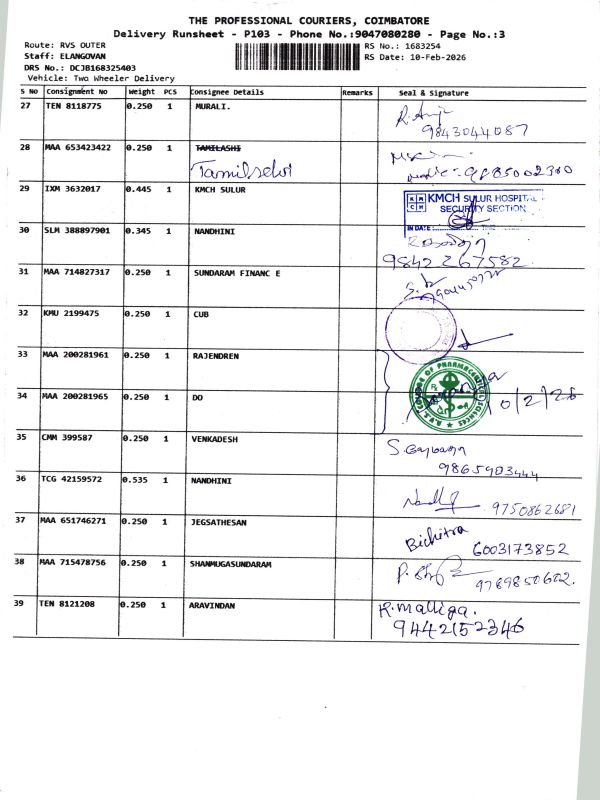 THE PROFESSIONAL COURIERS, COIMBATORE
Delivery Runsheet - P103 - Phone No.:9047080280 - Page No.:3
Route: RVS OUTER
RS No.: 1683254
Staff: ELANGOVAN
RS Date: 10-Feb-2026
DRS No.: DCJB168325403
Vehicle: Two Wheeler Delivery
S No Consignment No Weight PCS Consignee Details Remarks Seal & Signature
27 TEN 8118775 0.250 1 MURALI.
9843044087
28 MAA 653423422 0.250 1 TAMILASHI
Tamilselvi
29 IXM 3632017 0.445 1 KMCH SULUR
KMCH SULUR HOSPITAL
SECURITY SECTION
IN DATE:
30 SLM 388897901 0.345 1 NANDHINI
9842267582
31 MAA 714827317 0.250 1 SUNDARAM FINANC E
32 KMU 2199475 0.250 1 CUB
33 MAA 200281961 0.250 1 RAJENDREN
R.V.S. COLLEGE OF PHARMACEUTICAL SCIENCES
34 MAA 200281965 0.250 1 DO
10/2/26
35 CMM 399587 0.250 1 VENKADESH
9865903444
36 TCG 42159572 0.535 1 NANDHINI
9750862681
37 MAA 651746271 0.250 1 JEGSATHESAN
Bichitra
6003173852
38 MAA 715478756 0.250 1 SHANMUGASUNDARAM
9789850602.
39 TEN 8121208 0.250 1 ARAVINDAN
R.Malliga.
9442152346